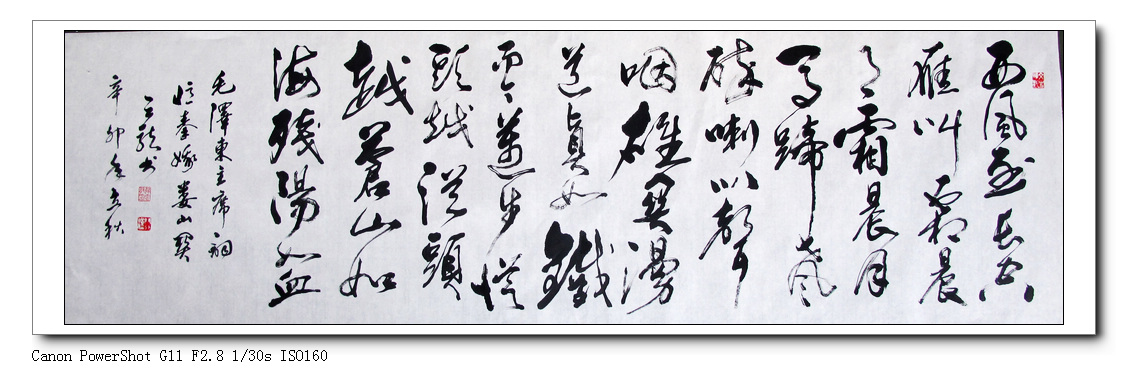 西風烈長空
雁叫霜晨
月霜晨月
馬蹄聲
碎喇叭聲
咽雄関漫
道真如鐵
而今邁步從
頭越從頭
越蒼山如
海殘陽如血
毛澤東主席詞
憶秦娥婁山関
王 书
辛卯年 秋
Canon PowerShot G11 F2.8 1/30s ISO160